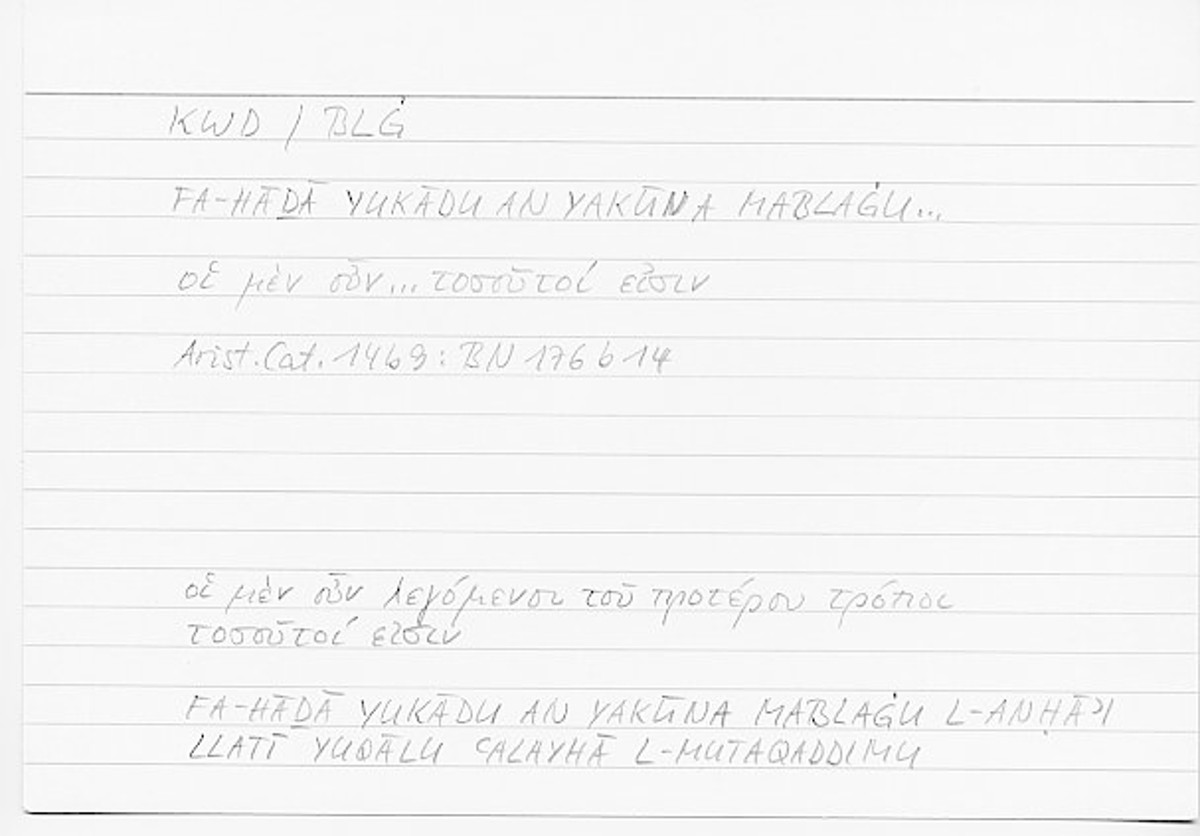 KWD / BLĠ
FA-HĀḎĀ YUKĀDU AN YAKŪNA MABLAĠU...
οἱ μὲν οὖν... τοσοῦτοί εἰσιν
Arist. Cat. 14b9: BN 176b14
οἱ μὲν οὖν λεγόμενοι τοῦ προτέρου τρόποι
τοσοῦτοί εἰσιν
FA-HĀḎĀ YUKĀDU AN YAKŪNA MABLAĠU L-ANḤĀʾI
LLATĪ YUQĀLU ʿALAYHĀ L-MUTAQADDIMU